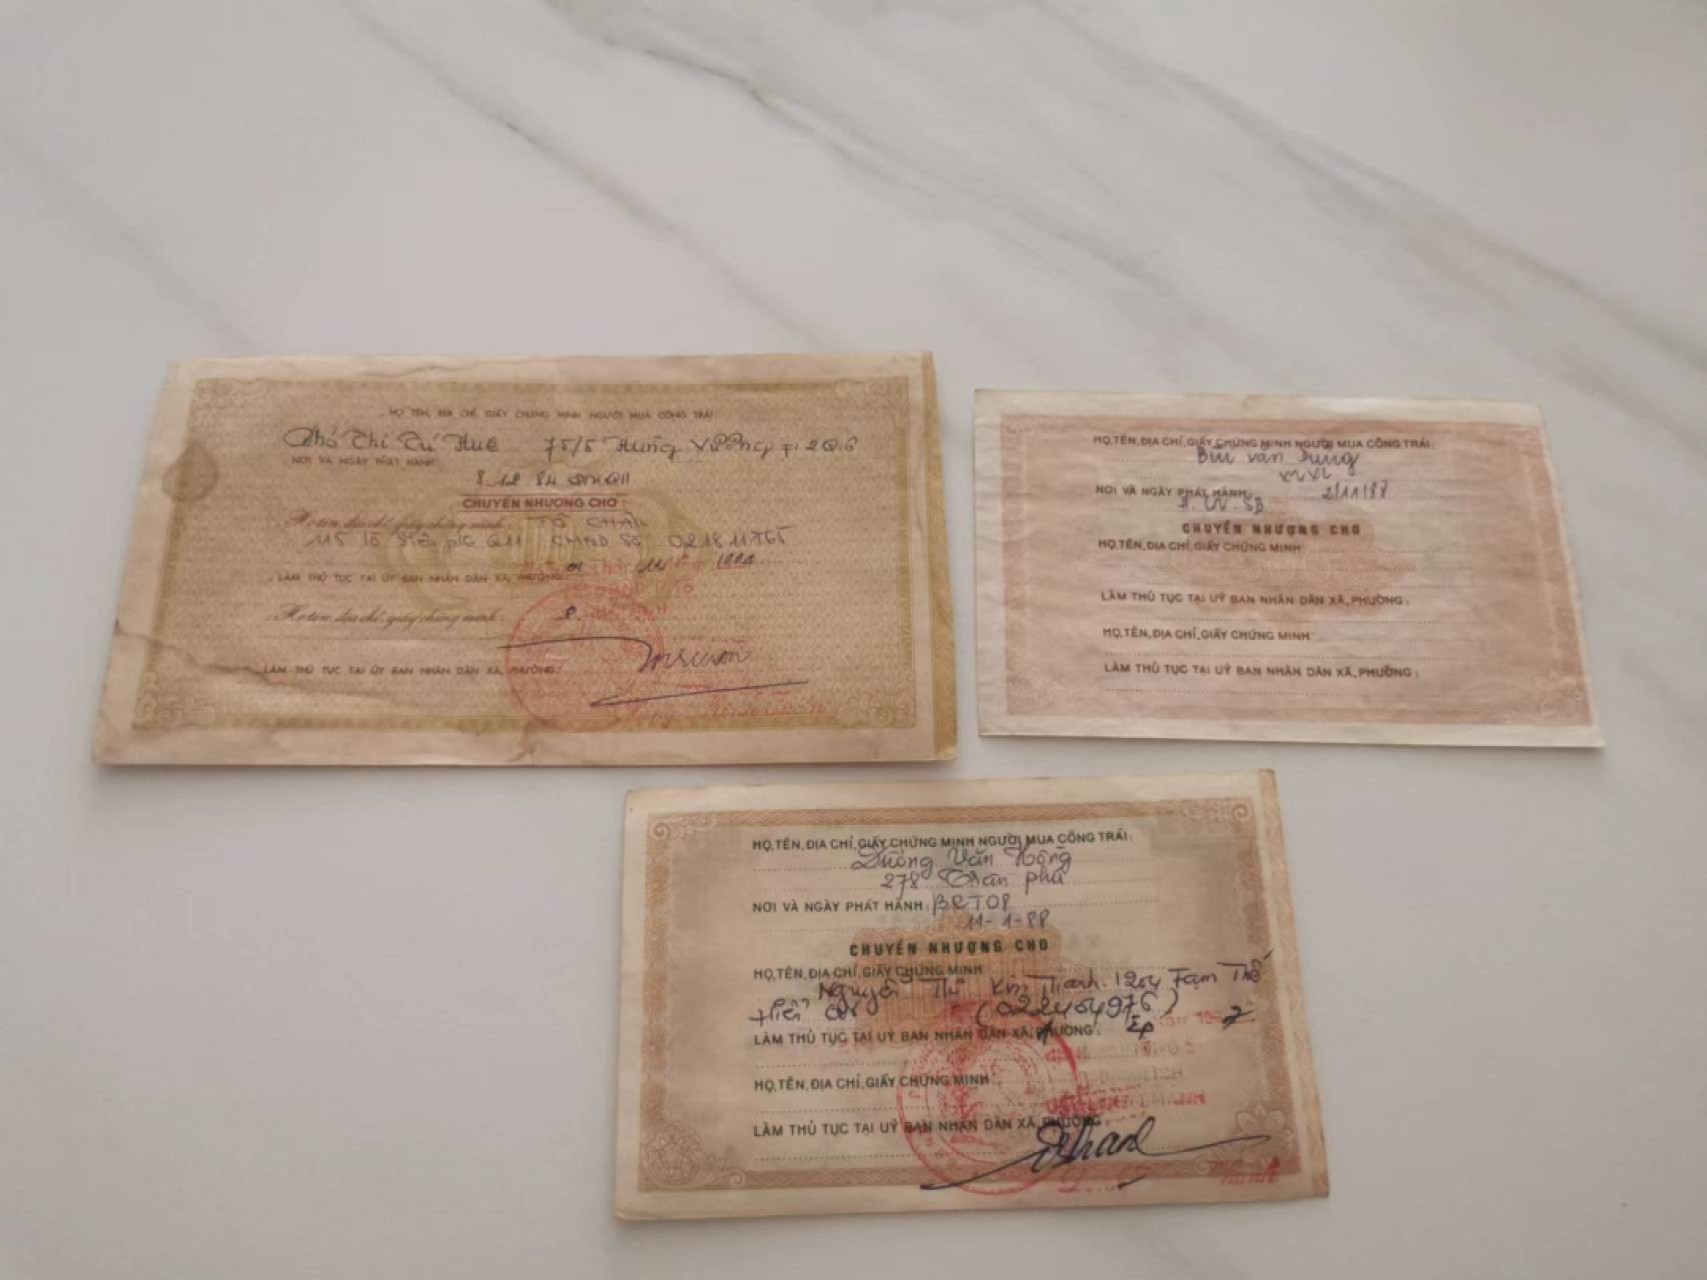 HỌ TÊN, ĐỊA CHỈ, GIẤY CHỨNG MINH NGƯỜI MUA CÔNG TRÁI:
Thị Tú Huê 75/5 Hùng Q.6
NƠI VÀ NGÀY PHÁT HÀNH:
8 12 84
CHUYỂN NHƯỢNG CHO:
Họ tên, địa chỉ, giấy chứng minh: TÔ
115 Tô Q11 CMND Số 021811765
LÀM THỦ TỤC TẠI ỦY BAN NHÂN DÂN XÃ, PHƯỜNG:
Họ tên, địa chỉ, giấy chứng minh:
LÀM THỦ TỤC TẠI ỦY BAN NHÂN DÂN XÃ, PHƯỜNG:
HỌ, TÊN, ĐỊA CHỈ, GIẤY CHỨNG MINH NGƯỜI MUA CÔNG TRÁI:
Bùi Văn Dung
NƠI VÀ NGÀY PHÁT HÀNH: 2/11/87
CHUYỂN NHƯỢNG CHO
HỌ, TÊN, ĐỊA CHỈ, GIẤY CHỨNG MINH:
LÀM THỦ TỤC TẠI UỶ BAN NHÂN DÂN XÃ, PHƯỜNG:
HỌ, TÊN, ĐỊA CHỈ, GIẤY CHỨNG MINH:
LÀM THỦ TỤC TẠI UỶ BAN NHÂN DÂN XÃ, PHƯỜNG:
HỌ, TÊN, ĐỊA CHỈ, GIẤY CHỨNG MINH NGƯỜI MUA CÔNG TRÁI:
Văn Hồng
278 Trần phú
NƠI VÀ NGÀY PHÁT HÀNH:
11-1-88
CHUYỂN NHƯỢNG CHO
HỌ, TÊN, ĐỊA CHỈ, GIẤY CHỨNG MINH
Nguyễn Thị Kim Thanh. 1204 Fạm Thế
Hiển (022404976)
LÀM THỦ TỤC TẠI UỶ BAN NHÂN DÂN XÃ, PHƯỜNG:
HỌ, TÊN, ĐỊA CHỈ, GIẤY CHỨNG MINH
LÀM THỦ TỤC TẠI UỶ BAN NHÂN DÂN XÃ, PHƯỜNG: